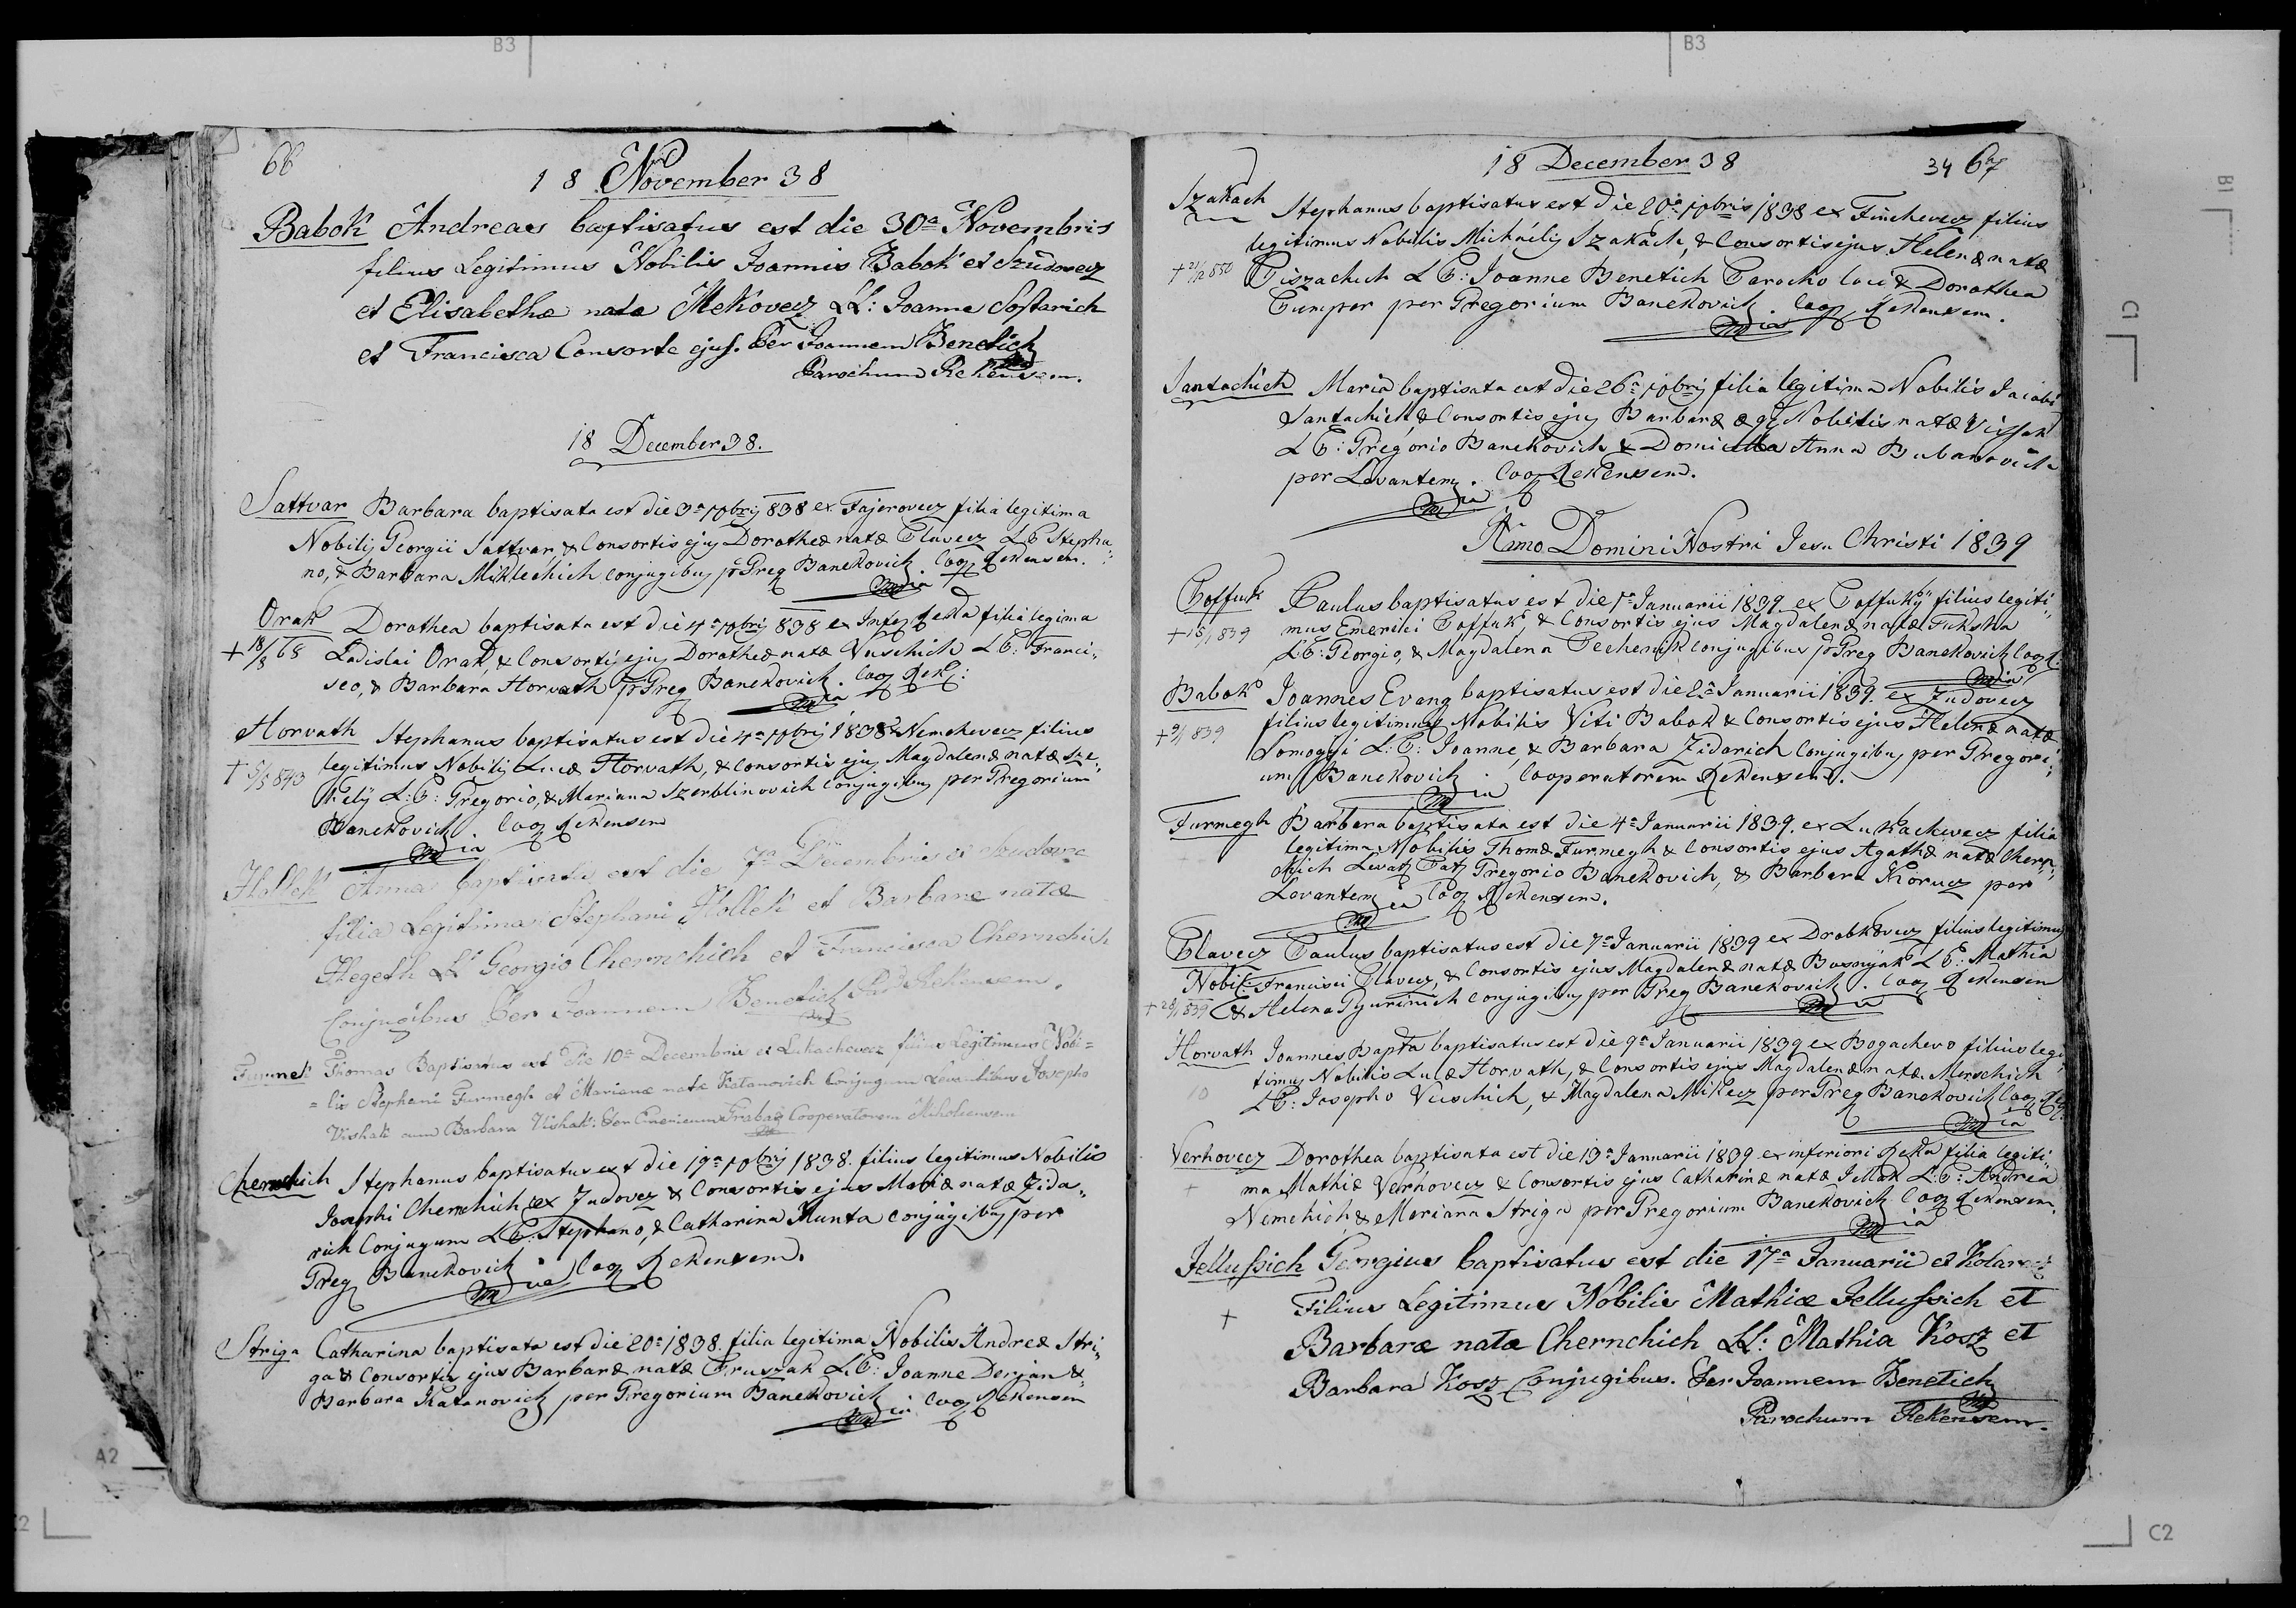 B3
B3
66
18 November 38
Babok Andreas baptisatus est die 30a Novembris
filius Legitimus Nobilis Joannis Babok ex Szudovecz
et Elisabethæ nata Mekovecz LL: Joanne Sostarich
et Francisca Consorte ejus. Per Joannem Benetich
Parochum Rekensem.
18 December 38.
Sattvar Barbara baptisata est die 3a 10bris 838 ex Fajerovecz filia legitima
Nobilis Georgii Sattvar, & Consortis ejus Dorotheæ natæ Plavecz L.P. Stepha,
no, & Barbara Miklechich conjugibus p Greg Banekovich. Coop Rekensem.
Orak Dorothea baptisata est die 4a 10bris 838 ex Infer Reka filia legima
+ 18/3 68 Ladislai Orak, & Consortis ejus Dorotheæ natæ Vuschich L.P.: Franci,
sco, & Barbara Horvath p Greg Banekovich. Coop Rek:
Horvath Stephanus baptisatus est die 4a 10bris 1838 ex Nemchevecz filius
+ 5/5 843 legitimus Nobilis Lucæ Horvath, & Consortis ejus Magdalenæ natæ Sze,
kely L.P: Gregorio, & Mariana Szerblinovich Conjugibus per Gregorium
Banekovich. Coop Rekensem
Hallek Anna baptisata est die 7a Decembris ex Szudovec
filia Legitima Stephani Hollek et Barbane natæ
Hegeth LL Georgio Chernchich et Francisca Chernchich
Conjugibus Per Joannem Benetich Par Rekensem.
Furmek Thomas Baptisatus est Die 10a Decembris ex Lukachevecz filius Legitimus Nobi=
=lis Stephani Furmegh et Marianæ nata Katanovich Conjugum Levantibus Josepho
Vishak cum Barbara Vishak: Per Emericum Grabar Cooperatorem Miholensem
Chernchich Stephanus baptisatus est die 19a 10bris 1838. filius legitimus Nobilis
Josephi Chernchich ex Zudovez & Consortis ejus Mariæ natæ Zida,
rich Conjugum L.P: Stephano, & Catharina Munta conjugibus per
Greg Banekovich Coop Rekensem.
Striga Catharina baptisata est die 20a 1838. filia legitima Nobilis Andreæ Stri,
ga & Consortis ejus Barbaræ natæ Pruszak L.P: Joanne Derjan &
Barbara Katanovich per Gregorium Banekovich Coop Rekensem
18 December 38
34 67
Szakach Stephanus baptisatus est die 20a 10bris 1838 ex Finchevecz filius
legitimus Nobilis Michaelis Szakach, & Consortis ejus Helenæ natæ
+ 21/12 850 Piszachich L.P: Joanne Benetich Parocho loci & Dorothea
Tumper per Gregorium Banekovich. Coop Rekensem.
Jantachich Maria baptisata est die 26a 10bris filia legitima Nobilis Jacobi
Jantachich & Consortis ejus Barbaræ æq Nobilis natæ Vissak
L.P: Gregorio Banekovich & Domicella Anna Bubanovich
per Levantem. Coop Rekensem.
Anno Domini Nostri Jesu Christi 1839
Poffuk Paulus baptisatus est die 1a Januarii 1839 ex Poffuky filius legiti,
+ 15/1 839 mus Emerici Poffuk, & Consortis ejus Magdalenæ natæ Fuksha
L.P: Georgio, & Magdalena Pechenik conjugibus p Greg Banekovich Coop R:
Babok Joannes Evang baptisatus est die 2a Januarii 1839. ex Zudovecz
+ 9/1 839 filius legitimus Nobilis Viti Babok & Consortis ejus Helenæ natæ
Somogyi L:P: Joanne, & Barbara Zidarich Conjugibus per Gregori,
um Banekovich. Cooperatorem Rekensem.
Furmegh Barbara baptisata est die 4a Januarii 1839. ex Lukachevecz filia
legitima Nobilis Thomæ Furmegh & Consortis ejus Agathæ natæ Chern,
chich Levat Pat Gregorio Banekovich, & Barbara Korucz per
Levantem Coop Rekensem.
Plavecz Paulus baptisatus est die 7a Januarii 1839 ex Drobkovecz filius legitimus
Nobil: Francisci Plavecz, & Consortis ejus Magdalenæ natæ Bosnyak L.P: Mathia
+ 28/1 839 & Helena Gyurinich conjugibus per Greg Banekovich. Coop Rekensem
Horvath Joannes Bapta baptisatus est die 9a Januarii 1839 ex Bogachevo filius legi,
timus Nobilis Lucæ Horvath, & Consortis ejus Magdalenæ natæ Merschich
10 L.P: Josepho Vuschich, & Magdalena Mikecz per Greg Banekovich Coop Rek:
Verhovecz Dorothea baptisata est die 13a Januarii 1839 ex inferiori Reka filia legiti,
+ ma Mathiæ Verhovecz & Consortis ejus Catharinæ natæ Jellak L.P: Andrea
Nemchich & Mariana Striga per Gregorium Banekovich Coop Rekensem.
Jellussich Georgius baptisatus est die 17a Januarii ex Kolarecz
+ Filius Legitimus Nobilis Mathiæ Jellussich et
Barbaræ nata Chernchich LL: Mathia Kosz et
Barbara Kosz Conjugibus. Per Joannem Benetich
Parochum Rekensem.
B1
C1
A2
C2